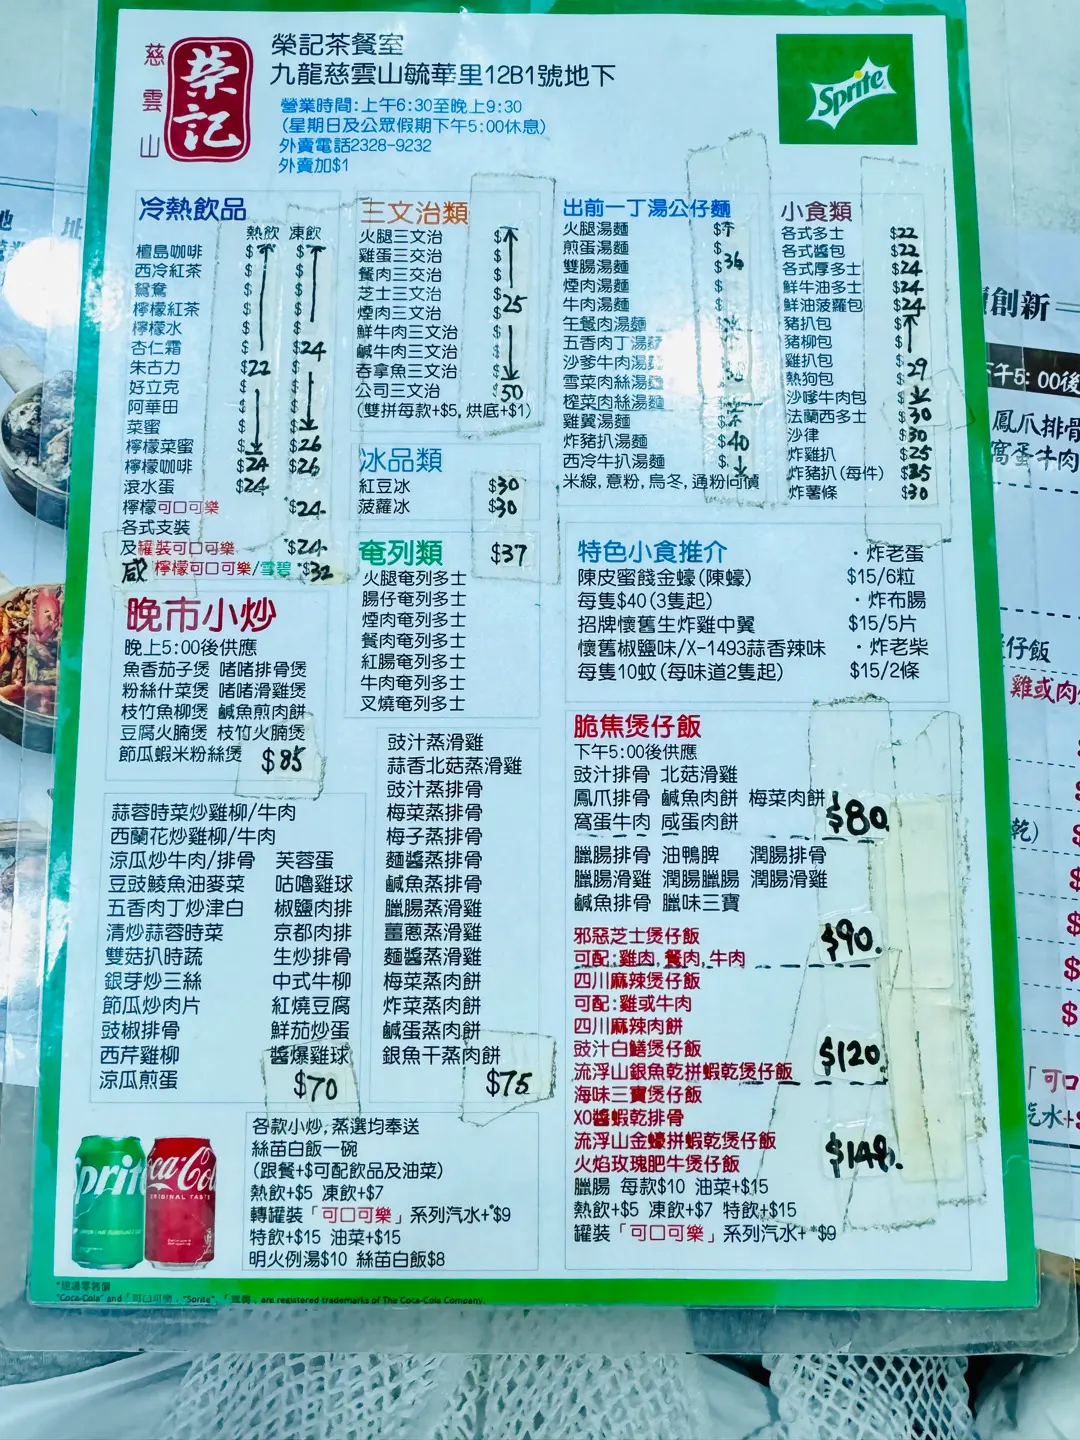 慈雲山
榮記
榮記茶餐室
九龍慈雲山毓華里12B1號地下
營業時間:上午6:30至晚上9:30
(星期日及公眾假期下午5:00休息)
外賣電話2328-9232
外賣加$1
Sprite
冷熱飲品
熱飲 凍飲
檀島咖啡 $ $
西冷紅茶 $ $
鴛鴦 $ $
檸檬紅茶 $ $
檸檬水 $ $
杏仁霜 $ $24
朱古力 $22 $
好立克 $ $
阿華田 $ $
菜蜜 $ $
檸檬菜蜜 $ $26
檸檬咖啡 $24 $26
滾水蛋 $24
檸檬可口可樂 *$24
各式支裝
及罐裝可口可樂 *$24
咸檸檬可口可樂/雪碧 *$32
三文治類
火腿三文治 $
雞蛋三交治 $
餐肉三交治 $
芝士三文治 $
煙肉三文治 $25
鮮牛肉三文治 $
鹹牛肉三文治 $
吞拿魚三文治 $
公司三文治 $50
(雙拼每款+$5,烘底+$1)
冰品類
紅豆冰 $30
菠蘿冰 $30
奄列類 $37
火腿奄列多士
腸仔奄列多士
煙肉奄列多士
餐肉奄列多士
紅腸奄列多士
牛肉奄列多士
叉燒奄列多士
出前一丁湯公仔麵
火腿湯麵 $
煎蛋湯麵 $
雙腸湯麵 $36
煙肉湯麵 $
牛肉湯麵 $
午餐肉湯麵
五香肉丁湯麵
沙爹牛肉湯麵
雪菜肉絲湯麵
榨菜肉絲湯麵
雞翼湯麵
炸豬扒湯麵 $40
西冷牛扒湯麵 $
米線,意粉,烏冬,通粉同價
小食類
各式多士 $22
各式醬包 $22
各式厚多士 $24
鮮牛油多士 $24
鮮油菠蘿包 $24
豬扒包 $
豬柳包 $
雞扒包 $
熱狗包 $29
沙嗲牛肉包 $
法蘭西多士 $30
沙律 $30
炸雞扒 $25
炸豬扒(每件) $35
炸薯條 $30
特色小食推介
陳皮蜜餞金蠔(陳蠔)
每隻$40(3隻起)
招牌懷舊生炸雞中翼
懷舊椒鹽味/X-1493蒜香辣味
每隻10蚊(每味道2隻起)
・炸老蛋
$15/6粒
・炸布腸
$15/5片
・炸老柴
$15/2條
晚市小炒
晚上5:00後供應
魚香茄子煲 啫啫排骨煲
粉絲什菜煲 啫啫滑雞煲
枝竹魚柳煲 鹹魚煎肉餅
豆腐火腩煲 枝竹火腩煲
節瓜蝦米粉絲煲 $85
蒜蓉時菜炒雞柳/牛肉
西蘭花炒雞柳/牛肉
涼瓜炒牛肉/排骨 芙蓉蛋
豆豉鯪魚油麥菜 咕嚕雞球
五香肉丁炒津白 椒鹽肉排
清炒蒜蓉時菜 京都肉排
雙菇扒時蔬 生炒排骨
銀芽炒三絲 中式牛柳
節瓜炒肉片 紅燒豆腐
豉椒排骨 鮮茄炒蛋
西芹雞柳 醬爆雞球
涼瓜煎蛋 $70
豉汁蒸滑雞
蒜香北菇蒸滑雞
豉汁蒸排骨
梅菜蒸排骨
梅子蒸排骨
麵醬蒸排骨
鹹魚蒸排骨
臘腸蒸滑雞
薑蔥蒸滑雞
麵醬蒸滑雞
梅菜蒸肉餅
炸菜蒸肉餅
鹹蛋蒸肉餅
銀魚干蒸肉餅
$75
脆焦煲仔飯
下午5:00後供應
豉汁排骨 北菇滑雞
鳳爪排骨 鹹魚肉餅 梅菜肉餅
窩蛋牛肉 咸蛋肉餅 $80
臘腸排骨 油鴨脾 潤腸排骨
臘腸滑雞 潤腸臘腸 潤腸滑雞
鹹魚排骨 臘味三寶
邪惡芝士煲仔飯 $90.
可配:雞肉,餐肉,牛肉
四川麻辣煲仔飯
可配:雞或牛肉
四川麻辣肉餅
豉汁白鱔煲仔飯 $120
流浮山銀魚乾拼蝦乾煲仔飯
海味三寶煲仔飯
XO醬蝦乾排骨
流浮山金蠔拼蝦乾煲仔飯
火焰玫瑰肥牛煲仔飯 $148.
臘腸 每款$10 油菜+$15
熱飲+$5 凍飲+$7 特飲+$15
罐裝「可口可樂」系列汽水+*$9
各款小炒,蒸選均奉送
絲苗白飯一碗
(跟餐+$可配飲品及油菜)
熱飲+$5 凍飲+$7
轉罐裝「可口可樂」系列汽水+*$9
特飲+$15 油菜+$15
明火例湯$10 絲苗白飯$8
Sprite
Coca-Cola
ORIGINAL TASTE
*建議零售價
"Coca-Cola" and「可口可樂」, "Sprite",「雪碧」are registered trademarks of The Coca-Cola Company.
創新
下午5:00後
鳳爪排骨
窩蛋牛肉
仔飯
雞或肉
乾)
「可口
汽水+$